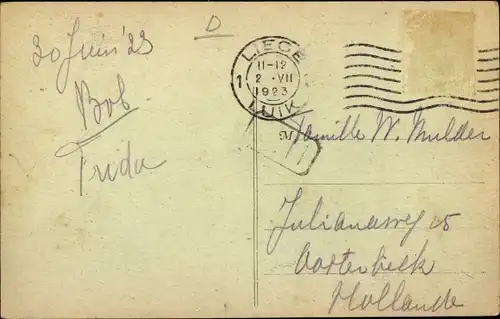 D
30 Juin '23
Bob
Frida
LIEGE
1 11-12 1
2 VII
1923
LUIK
M
Familie W. Mulder
Julianaweg 15
Oosterbeek
Hollande